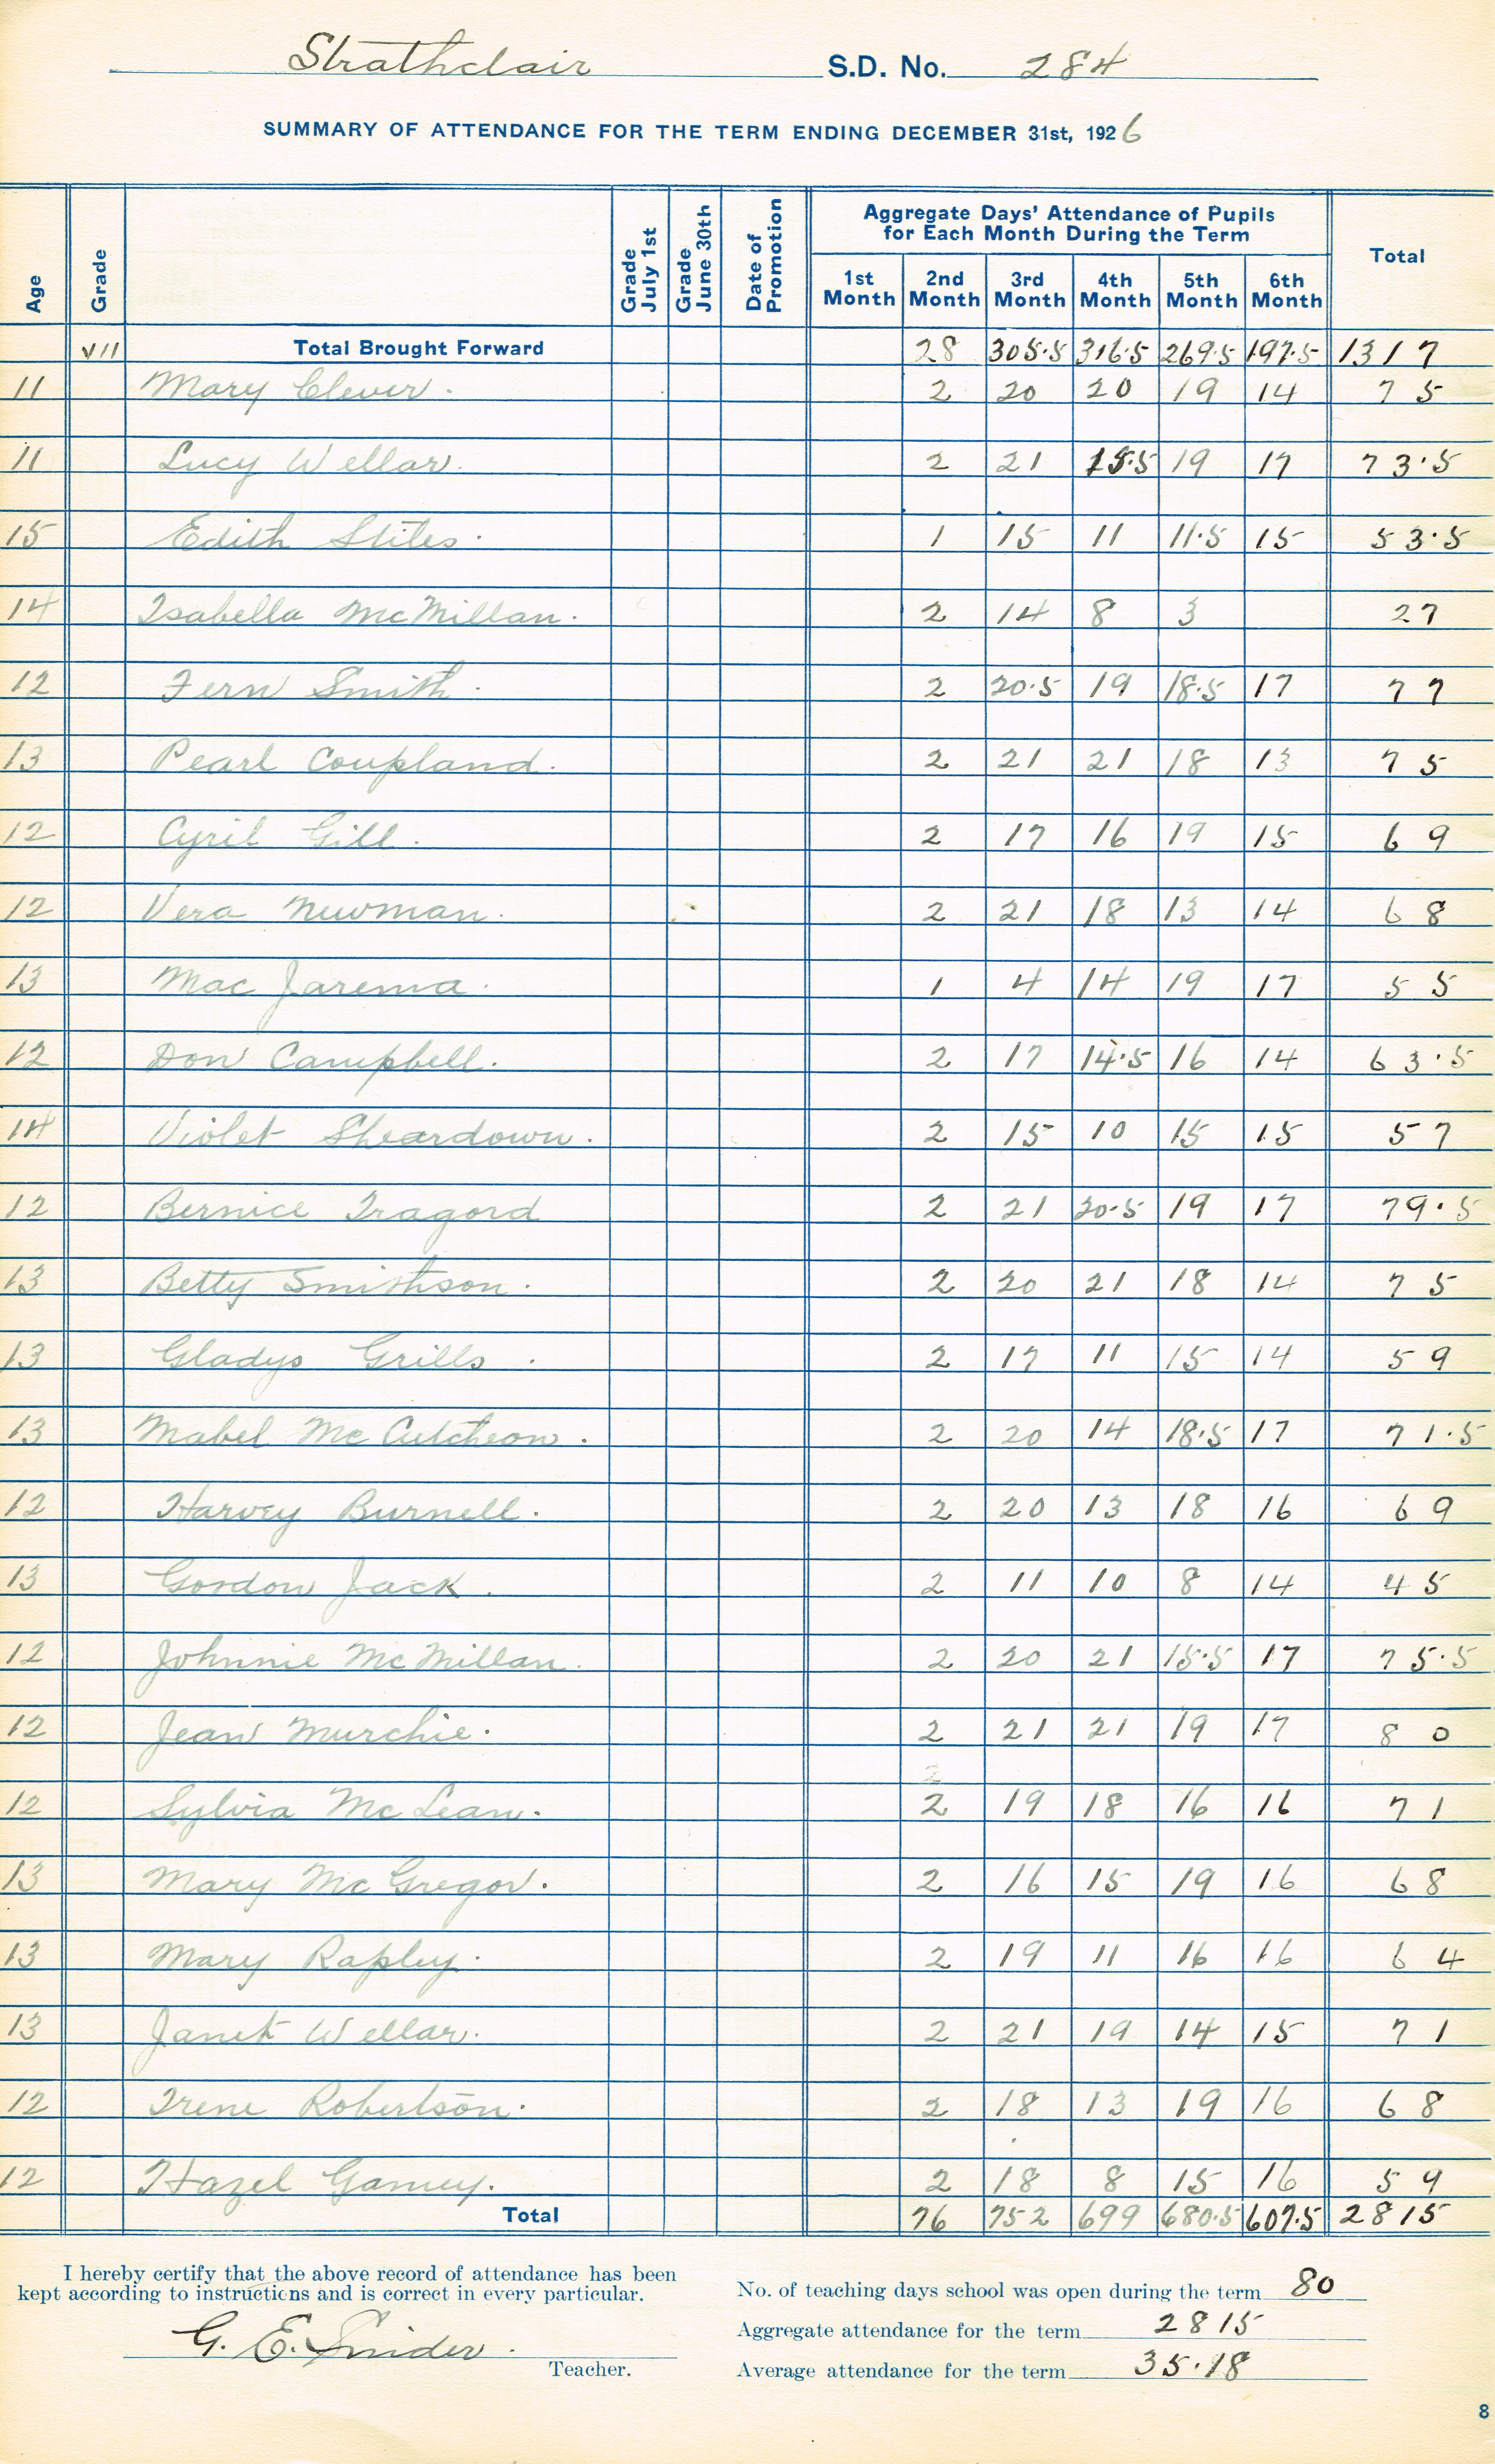 Strathclair S.D. No. 284
SUMMARY OF ATTENDANCE FOR THE TERM ENDING DECEMBER 31st, 1926
Age Grade Grade July 1st Grade June 30th Date of Promotion Aggregate Days' Attendance of Pupils for Each Month During the Term Total
1st Month 2nd Month 3rd Month 4th Month 5th Month 6th Month
VII Total Brought Forward 28 305.5 316.5 269.5 197.5 1317
11 Mary Clever. 2 20 20 19 14 75
11 Lucy Wellar. 2 21 15.5 19 17 73.5
15 Edith Stites. 1 15 11 11.5 15 53.5
14 Isabella McMillan. 2 14 8 3 27
12 Fern Smith. 2 20.5 19 18.5 17 77
13 Pearl Coupland. 2 21 21 18 13 75
12 Cyril Gill. 2 17 16 19 15 69
12 Vera Newman. 2 21 18 13 14 68
13 Mac Jarema. 1 4 14 19 17 55
12 Don Campbell. 2 17 14.5 16 14 63.5
14 Violet Sheardown. 2 15 10 15 15 57
12 Bernice Tragord 2 21 20.5 19 17 79.5
13 Betty Smithson. 2 20 21 18 14 75
13 Gladys Grills. 2 17 11 15 14 59
13 Mabel McCutcheon. 2 20 14 18.5 17 71.5
12 Harvey Burnell. 2 20 13 18 16 69
13 Gordon Jack. 2 11 10 8 14 45
12 Johnnie McMillan. 2 20 21 15.5 17 75.5
12 Jean Murchie. 2 21 21 19 17 80
12 Sylvia McLean. 2 19 18 16 16 71
13 Mary McGregor. 2 16 15 19 16 68
13 Mary Rapley. 2 19 11 16 16 64
13 Janet Wellar. 2 21 19 14 15 71
12 Irene Robertson. 2 18 13 19 16 68
12 Hazel Gamey. 2 18 8 15 16 59
Total 76 752 699 680.5 607.5 2815
I hereby certify that the above record of attendance has been
kept according to instructions and is correct in every particular.
G. E. Snider.
Teacher.
No. of teaching days school was open during the term 80
Aggregate attendance for the term 2815
Average attendance for the term 35.18
8